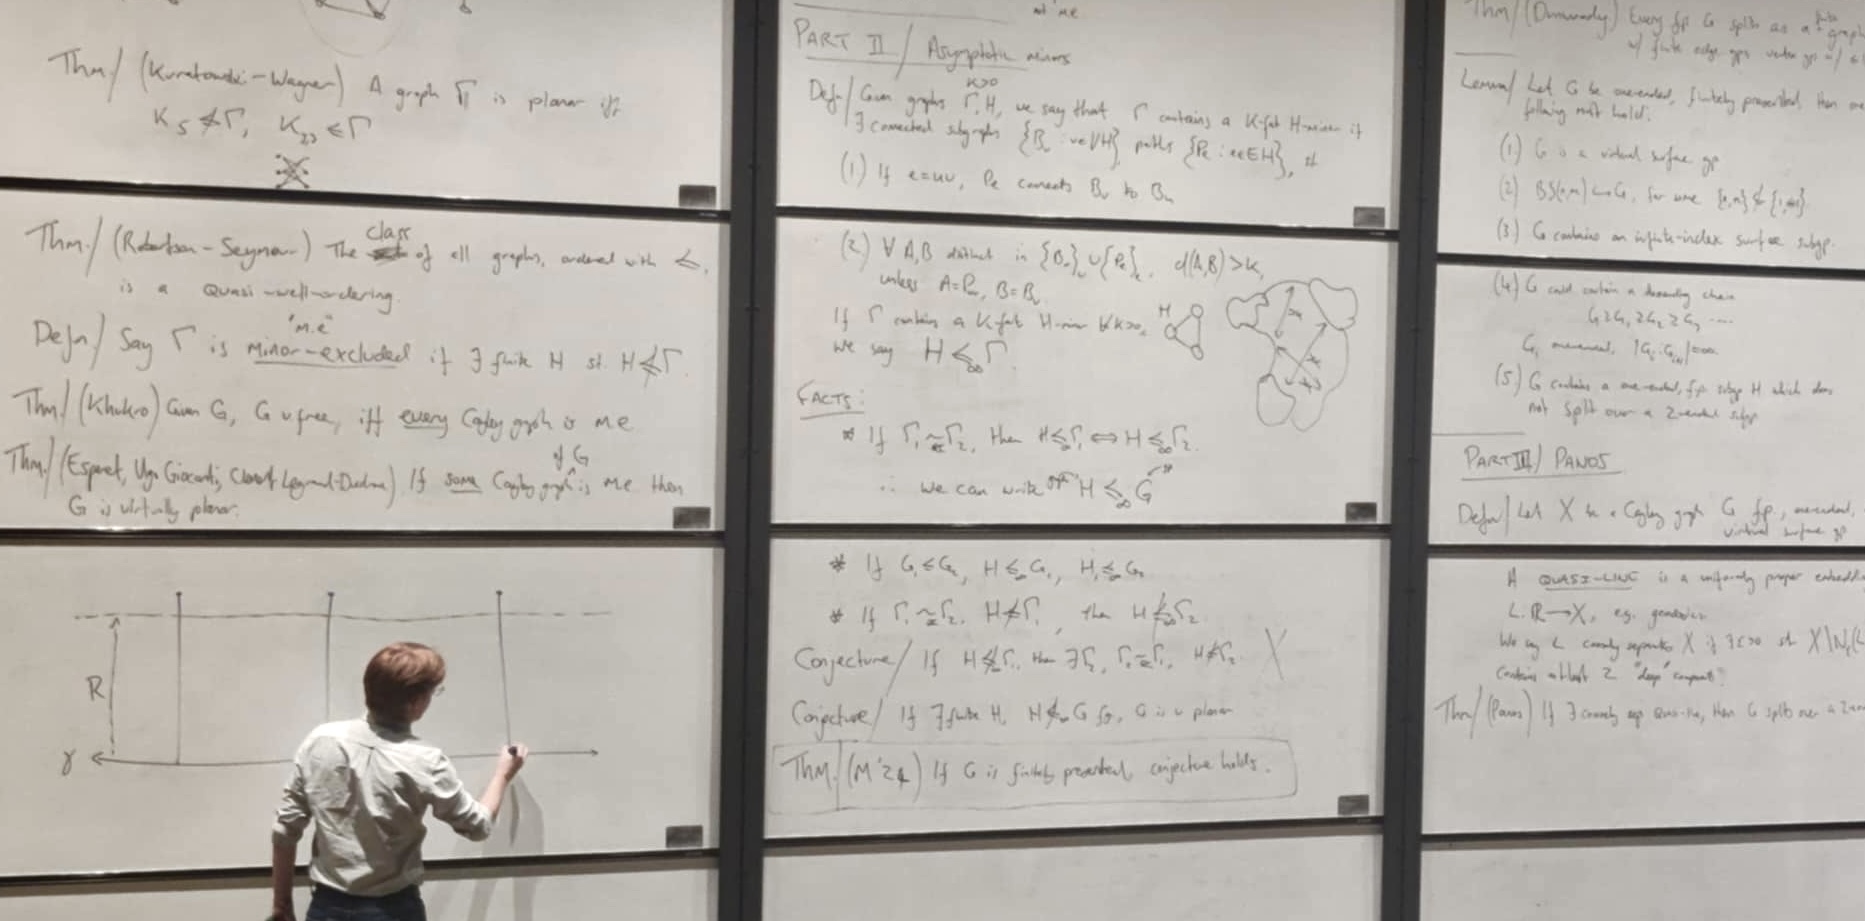 Thm/ (Kuratowski-Wagner) A graph Γ is planar iff
K5 ≰ Γ, K33 ≰ Γ
Thm./ (Robertson-Seymour) The class of all graphs, ordered with ≤,
is a quasi-well-ordering.
"m.e"
Defn/ Say Γ is minor-excluded if ∃ finite H st. H≰Γ.
Thm/ (Khukro) Given G, G v free, iff every Cayley graph is me
Thm./ (Esperet, Ugo Giocanti, Clément Legrand-Duchesne) If some Cayley graph of G is me then
G is virtually planar.
R
γ
at me
PART II / Asymptotic minors
Defn/ Given graphs Γ, H, K>0 we say that Γ contains a K-fat H-minor if
∃ connected subgraphs {Bv : v∈VH} paths {Pe : e∈EH}, st
(1) If e=uv, Pe connects Bv to Bu
(2) ∀ A,B distinct in {Bv}v ∪ {Pe}e, d(A,B) > K,
unless A=Pe, B=Bv
If Γ contains a K-fat H-minor ∀K>0, H
we say H ≤∞ Γ.
FACTS:
* If Γ1 ≃ Γ2, then H≤∞Γ1 ⇔ H≤∞Γ2.
∴ We can write H ≤∞ G
* If G1≤G2, H≤∞G1, H≤∞G2
* If Γ1≃Γ2, H≰Γ1, then H≰∞Γ2.
Conjecture/ If H≰∞Γ1, then ∃Γ2, Γ2≃Γ1, H≰Γ2. X
Conjecture/ If ∃ finite H, H≰∞G fg, G is v planar
Thm./ (M'24) If G is finitely presented, conjecture holds.
Thm/ (Dunwoody) Every fp G splits as a finite graph
w/ finite edge gps vertex gps w/
Lemma/ Let G be one-ended, finitely presented, then one
following must hold:
(1) G is a virtual surface gp
(2) BS(n,m)↪G, for some
(3) G contains an infinite-index surface subgp.
(4) G contain a descending chain
G≥G1≥G2≥G3 ....
Gi one-ended, |Gi:Gi+1|=∞
(5) G contains a one-ended, fp subgp H which does
not split over a 2-ended subgp
PART III/ PANOS
Defn/ Let X be a Cayley graph G fp., one-ended,
virtual surface gp
A QUASI-LINE is a uniformly proper embedd
L:R→X, e.g. geodesics
We say L coarsely separates X if ∃r>0 st X\Nr(L
contains at least 2 "deep" components
Thm/ (Panos) If ∃ coarsely sep quasi-line, then G splits over a 2-en